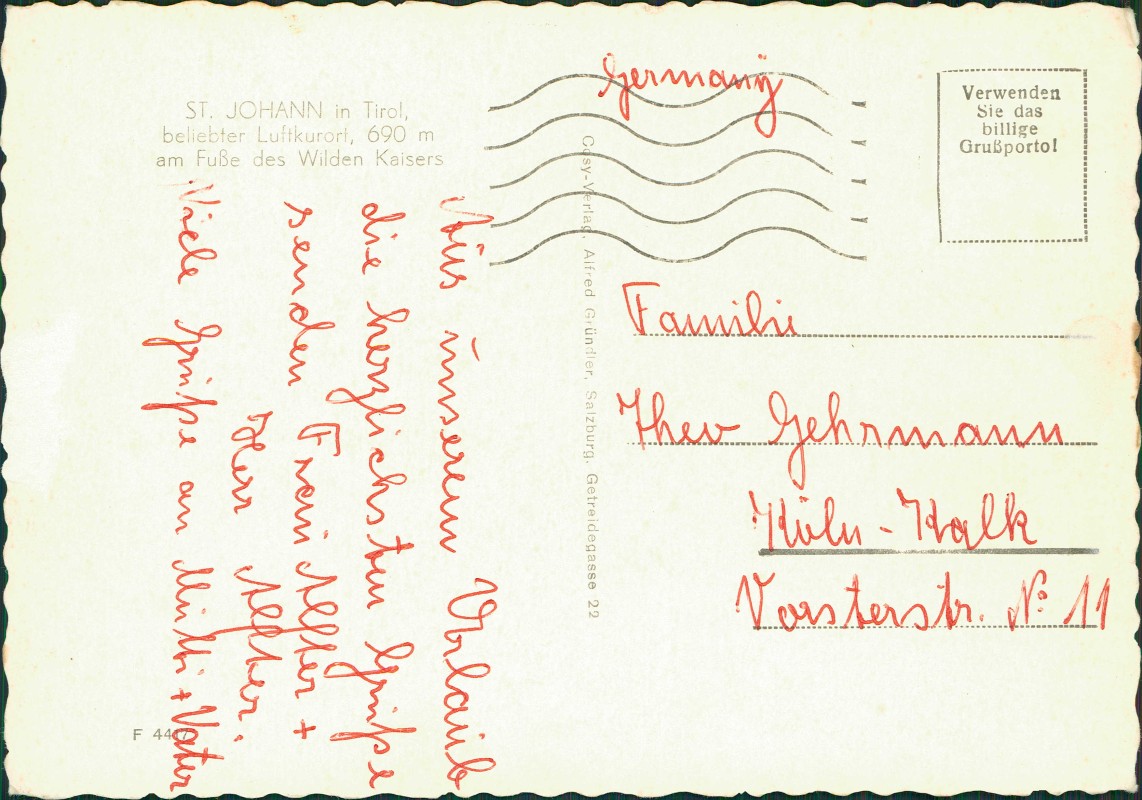 ST. JOHANN in Tirol,
beliebter Luftkurort, 690 m
am Fuße des Wilden Kaisers
Aus unserem Urlaub
die herzlichsten Grüße
senden Frau Alfter +
Herr Alfter.
Viele Grüße an Mutti + Vater
F 4417
Cosy-Verlag, Alfred Gründler, Salzburg, Getreidegasse 22
Germany
Verwenden
Sie das
billige
Grußporto!
Familie
Theo Gehrmann
Köln - Kalk
Vorsterstr. No 11